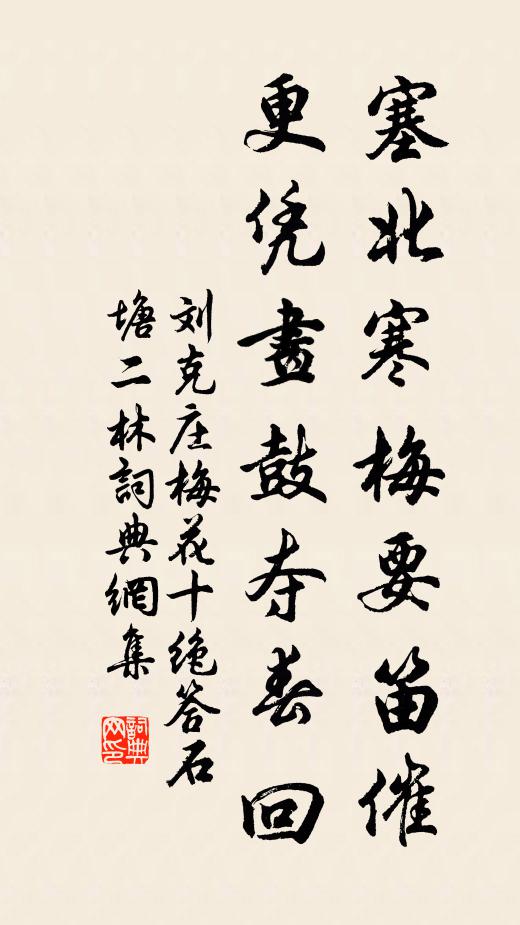 塞北寒梅要笛催
更凭畫鼓夺春回
刘克庄梅花十绝答石
塘二林詞典網集
詞典
网印